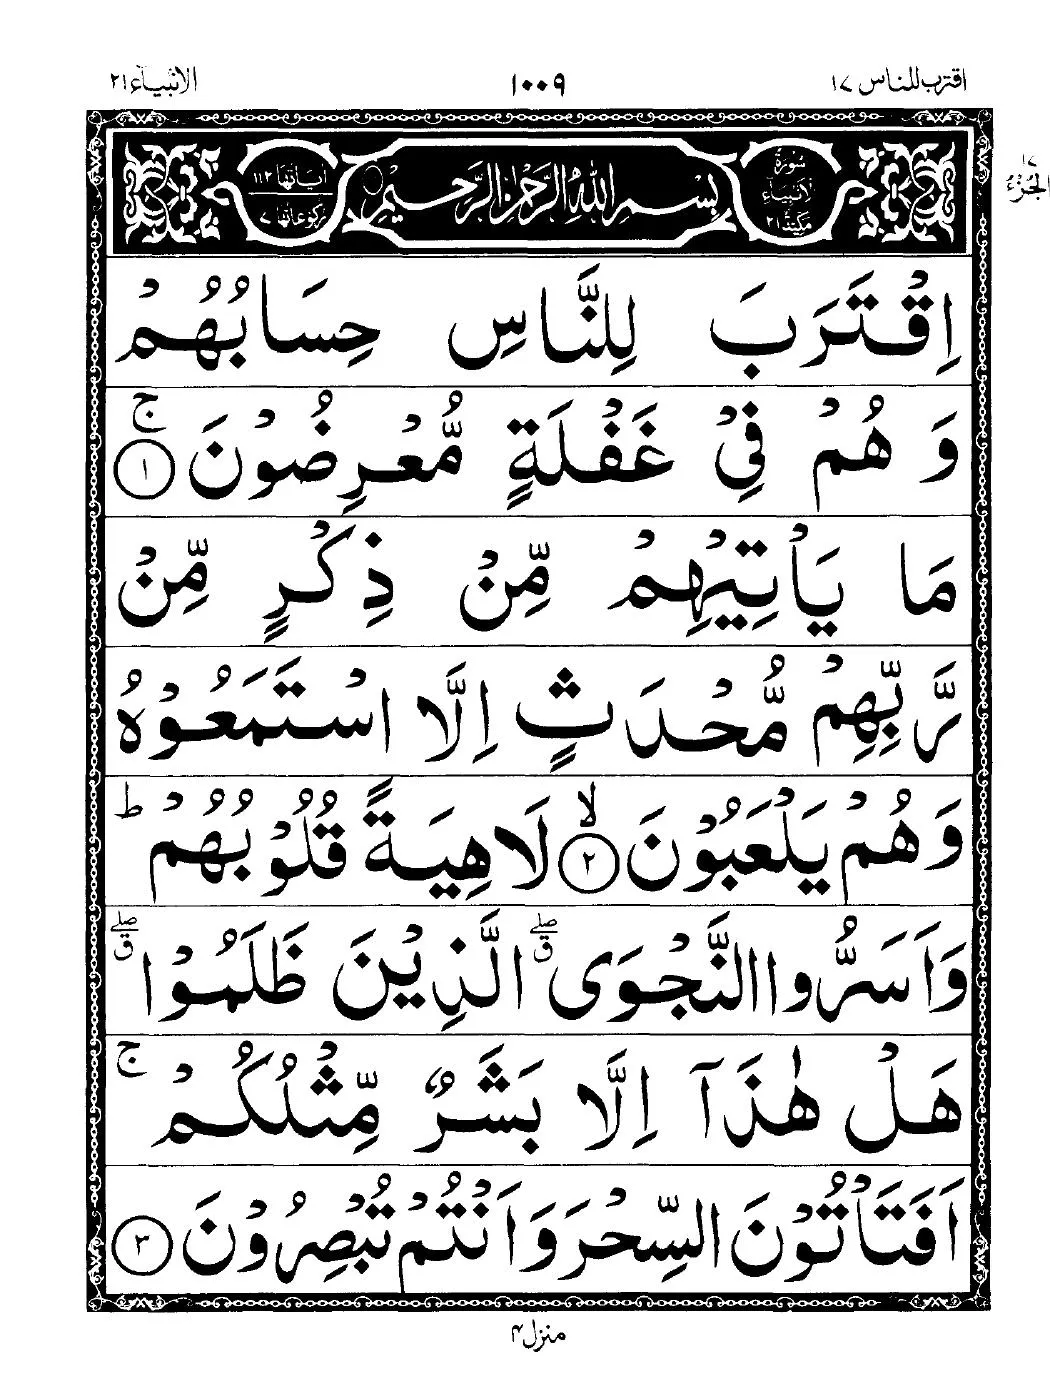 اقترب للناس ١٧
١٠٠٩
الانبیآء ٢١
١٧
الجزء
سُوْرَةُ الْاَنْبِيَآءِ مَكِّيَّةٌ ٢١
بِسْمِ اللّٰهِ الرَّحْمٰنِ الرَّحِيْمِ
اٰيَاتُهَا ١١٢
رُكُوْعَاتُهَا ٧
اِقْتَرَبَ لِلنَّاسِ حِسَابُهُمْ
وَ هُمْ فِيْ غَفْلَةٍ مُّعْرِضُوْنَ ۚ ١
مَا يَاْتِيْهِمْ مِّنْ ذِكْرٍ مِّنْ
رَّبِّهِمْ مُّحْدَثٍ اِلَّا اسْتَمَعُوْهُ
وَ هُمْ يَلْعَبُوْنَ ۙ ٢ لَاهِيَةً قُلُوْبُهُمْ ؕ
وَ اَسَرُّوا النَّجْوَى ۖق الَّذِيْنَ ظَلَمُوْا ۖق
هَلْ هٰذَاۤ اِلَّا بَشَرٌ مِّثْلُكُمْ ۚ
اَفَتَاْتُوْنَ السِّحْرَ وَ اَنْتُمْ تُبْصِرُوْنَ ٣
منزل ۴